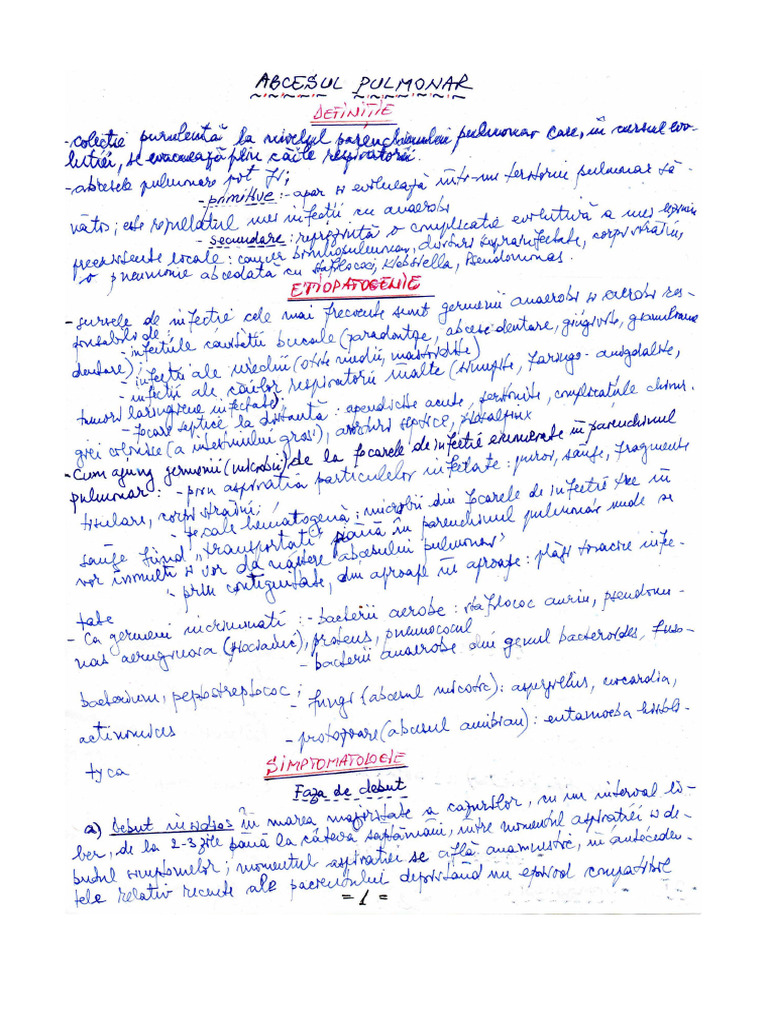 ABCESUL PULMONAR
DEFINIȚIE
- colecție purulentă la nivelul parenchimului pulmonar care, în cursul evo-
luției, se evacuează prin căile respiratorii.
- abcesele pulmonare pot fi:
- primitive: - apar și evoluează într-un teritoriu pulmonar să-
nătos; este rezultatul unei infecții cu anaerobi
- secundare: reprezintă o complicată evolutivă a unei leziuni
preexistente locale: cancer bronhopulmonar, chisturi suprainfectate, corpi străini,
o pneumonie abcedată cu stafilococi, Klebsiella, Pseudomonas.
ETIOPATOGENIE
- sursele de infecție cele mai frecvente sunt germenii anaerobi și aerobi res-
ponsabili de:
- infecțiile cavității bucale (paradontoze, abcese dentare, gingivite, granuloame
dentare);
- infecții ale urechii (otite medii, mastoidite)
- infecții ale căilor respiratorii înalte (sinuzite, faringo-amigdalite,
tumori laringiene infectate);
- focare septice la distanță: apendicite acute, peritonite, complicațiile chirur-
giei colonice (a intestinului gros), avorturi septice, piosalpinx
- Cum ajung germenii (microbii) de la focarele de infecție enumerate în parenchimul
pulmonar: - prin aspirația particulelor infectate: puroi, sânge, fragmente
tisulare, corpi străini;
- pe cale hematogenă: microbii din focarele de infecție trec în
sânge fiind „transportați” până în parenchimul pulmonar unde se
vor înmulți și vor da naștere abcesului pulmonar
- prin contiguitate, din aproape în aproape: plăgi toracice infec-
tate
- Ca germeni incriminati: - bacterii aerobe: stafilococ auriu, pseudomo-
nas aeruginosa (piocianic), proteus, pneumococul
- bacterii anaerobe din genul bacteroides, fuso-
bacterium, peptostreptococ;
- fungi (abcesul micotic): aspergilus, nocardia,
actinomices
- protozoare (abcesul amibian): entamoeba histoli-
tyca
SIMPTOMATOLOGIE
Faza de debut
a) Debut insidios în marea majoritate a cazurilor, cu un interval li-
ber, de la 2-3 zile până la câteva săptămâni, între momentul aspirației și de-
butul simptomelor; momentul aspirației se află anamnestic, în anteceden-
tele relativ recente ale pacientului depistând un episod compatibil
= 1 =